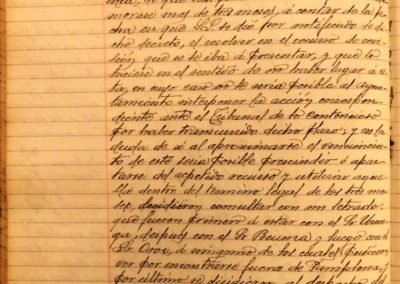 morase mas de tres meses, á contar de la fe
cha en que S.S. se dió por notificado de di
cho decreto, el resolver en el recurso de revi
sión que se le iba á presentar, y que lo
hiciese en el sentido de no haber lugar á es
ta, en cuyo caso no le seria posible al ayun
tamiento interponer la acción correspon
diente ante el Tribunal de lo Contencioso
por haber transcurrido dicho plazo; y en la
duda de si al aproximarse el vencimien
to de este seria posible prescindir ó apar
tarse del repetido recurso y utilizar aque
lla dentro del termino legal de los tres me
ses, decidieron consultar con un letrado:
que fueron primero á estar con el Sr Uran
ga, despues con el Sr Beunza y luego con el
Sr Oroz, á ninguno de los cuales pudieron
ver por encontrarse fuera de Pamplona, y
por último se al despacho del